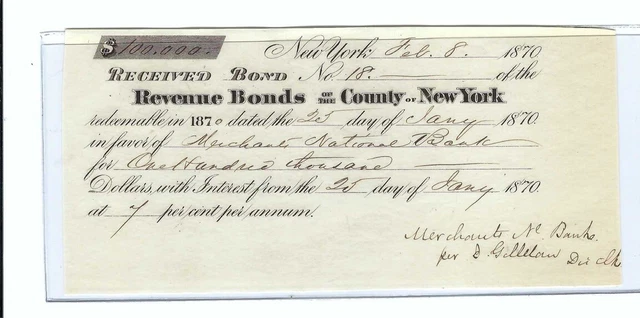 $100,000.-
New York Feb. 8. 1870
Received Bond No. 18. of the
Revenue Bonds OF THE County of New York
redeemable, in 1870 dated the 25 day of Jany 1870.
in favor of Merchants National Bank
for One Hundred thousand
Dollars, with Interest from the 25 day of Jany 1870.
at 7 per cent per annum.
Merchants Nl. Bank.
per D. Gillelan Dis Clk